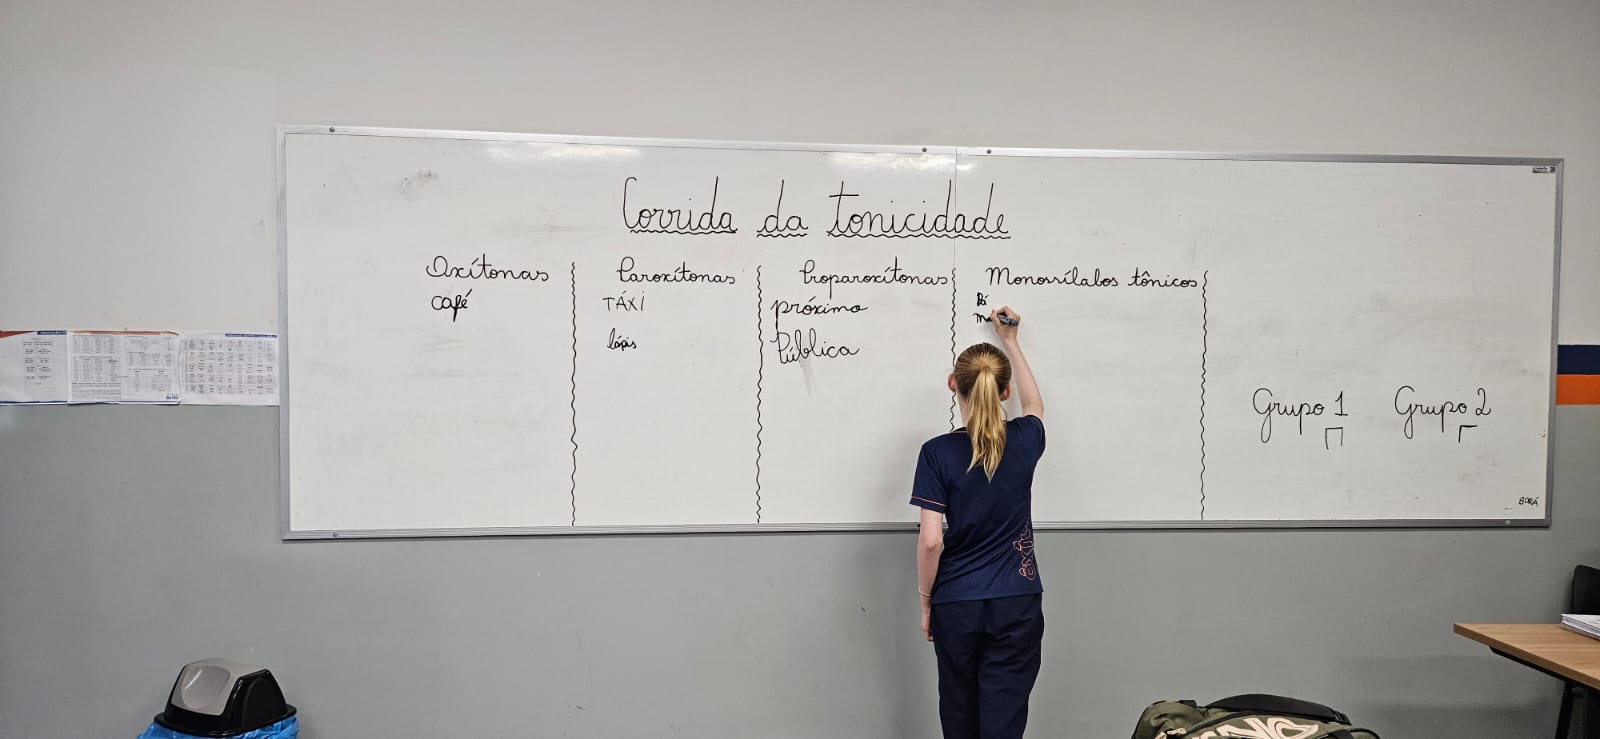 Corrida da tonicidade
Oxítonas
café
Paroxítonas
TÁXI
lápis
Proparoxítonas
próximo
Pública
Monossílabos tônicos
Pá
Grupo 1
Grupo 2
BORÁ